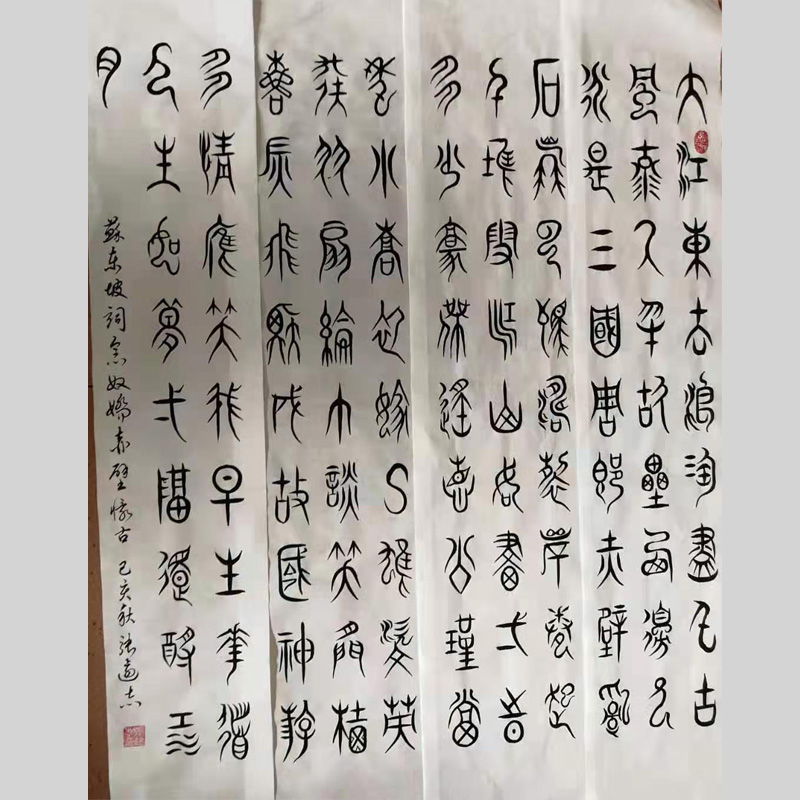 大江東去浪淘盡千古
風流人物故壘西邊人
道是三國周郎赤壁亂
石崩雲驚濤裂岸捲起
千堆雪江山如畫一時
多少豪傑遙想公瑾當
年小喬初嫁了雄姿英
發羽扇綸巾談笑間檣
櫓灰飛煙滅故國神遊
多情應笑我早生華髮
人生如夢一尊還酹江
月
蘇東坡詞念奴嬌赤壁懷古 己亥秋張遠志